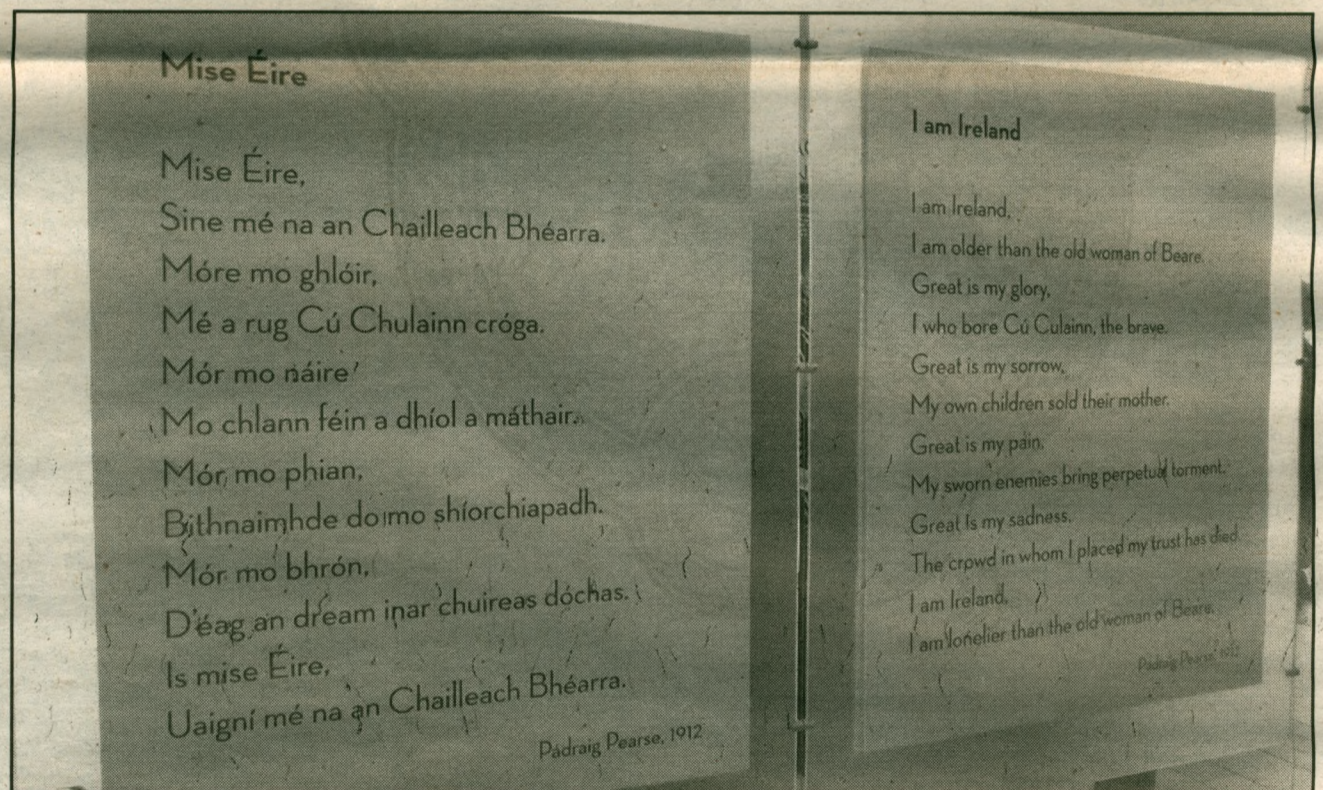 Mise Éire
Mise Éire,
Sine mé na an Chailleach Bhéarra.
Móre mo ghlóir,
Mé a rug Cú Chulainn cróga.
Mór mo náire'
Mo chlann féin a dhíol a máthair.
Mór mo phian,
Bithnaimhde do mo shíorchiapadh.
Mór mo bhrón,
D'éag an dream inar chuireas dóchas.
Is mise Éire,
Uaigní mé na an Chailleach Bhéarra.
Pádraig Pearse, 1912
I am Ireland
I am Ireland,
I am older than the old woman of Beare.
Great is my glory,
I who bore Cú Culainn, the brave.
Great is my sorrow,
My own children sold their mother.
Great is my pain,
My sworn enemies bring perpetual torment.
Great is my sadness,
The crowd in whom I placed my trust has died.
I am Ireland,
I am lonelier than the old woman of Beare.
Pádraig Pearse, 1912